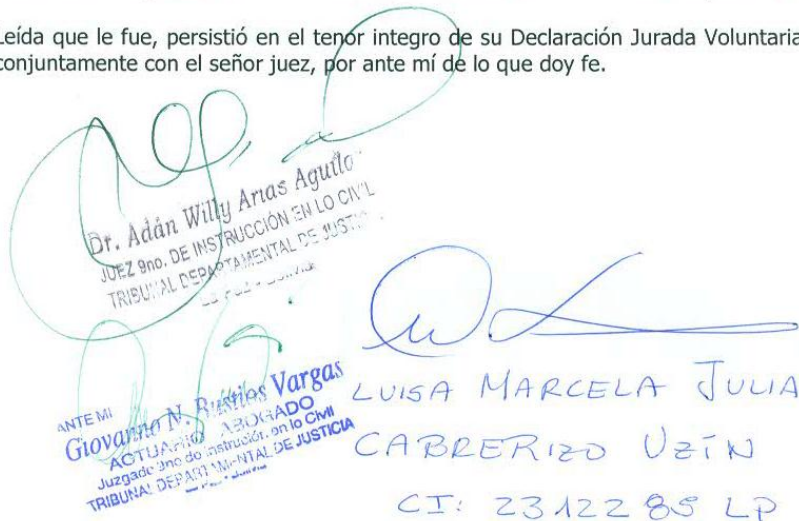 Leída que le fue, persistió en el tenor integro de su Declaración Jurada Voluntaria
conjuntamente con el señor juez, por ante mí de lo que doy fe.
Dr. Adán Willy Arias Aguilo
JUEZ 9no. DE INSTRUCCIÓN EN LO CIVIL
TRIBUNAL DEPARTAMENTAL DE JUSTICIA
ANTE MI
Giovanno N. Bustios Vargas
ACTUARIO ABOGADO
Juzgado 9no de Instrucción en lo Civil
TRIBUNAL DEPARTAMENTAL DE JUSTICIA
LUISA MARCELA JULIA
CABRERIZO UZÍN
CI: 2312285 LP